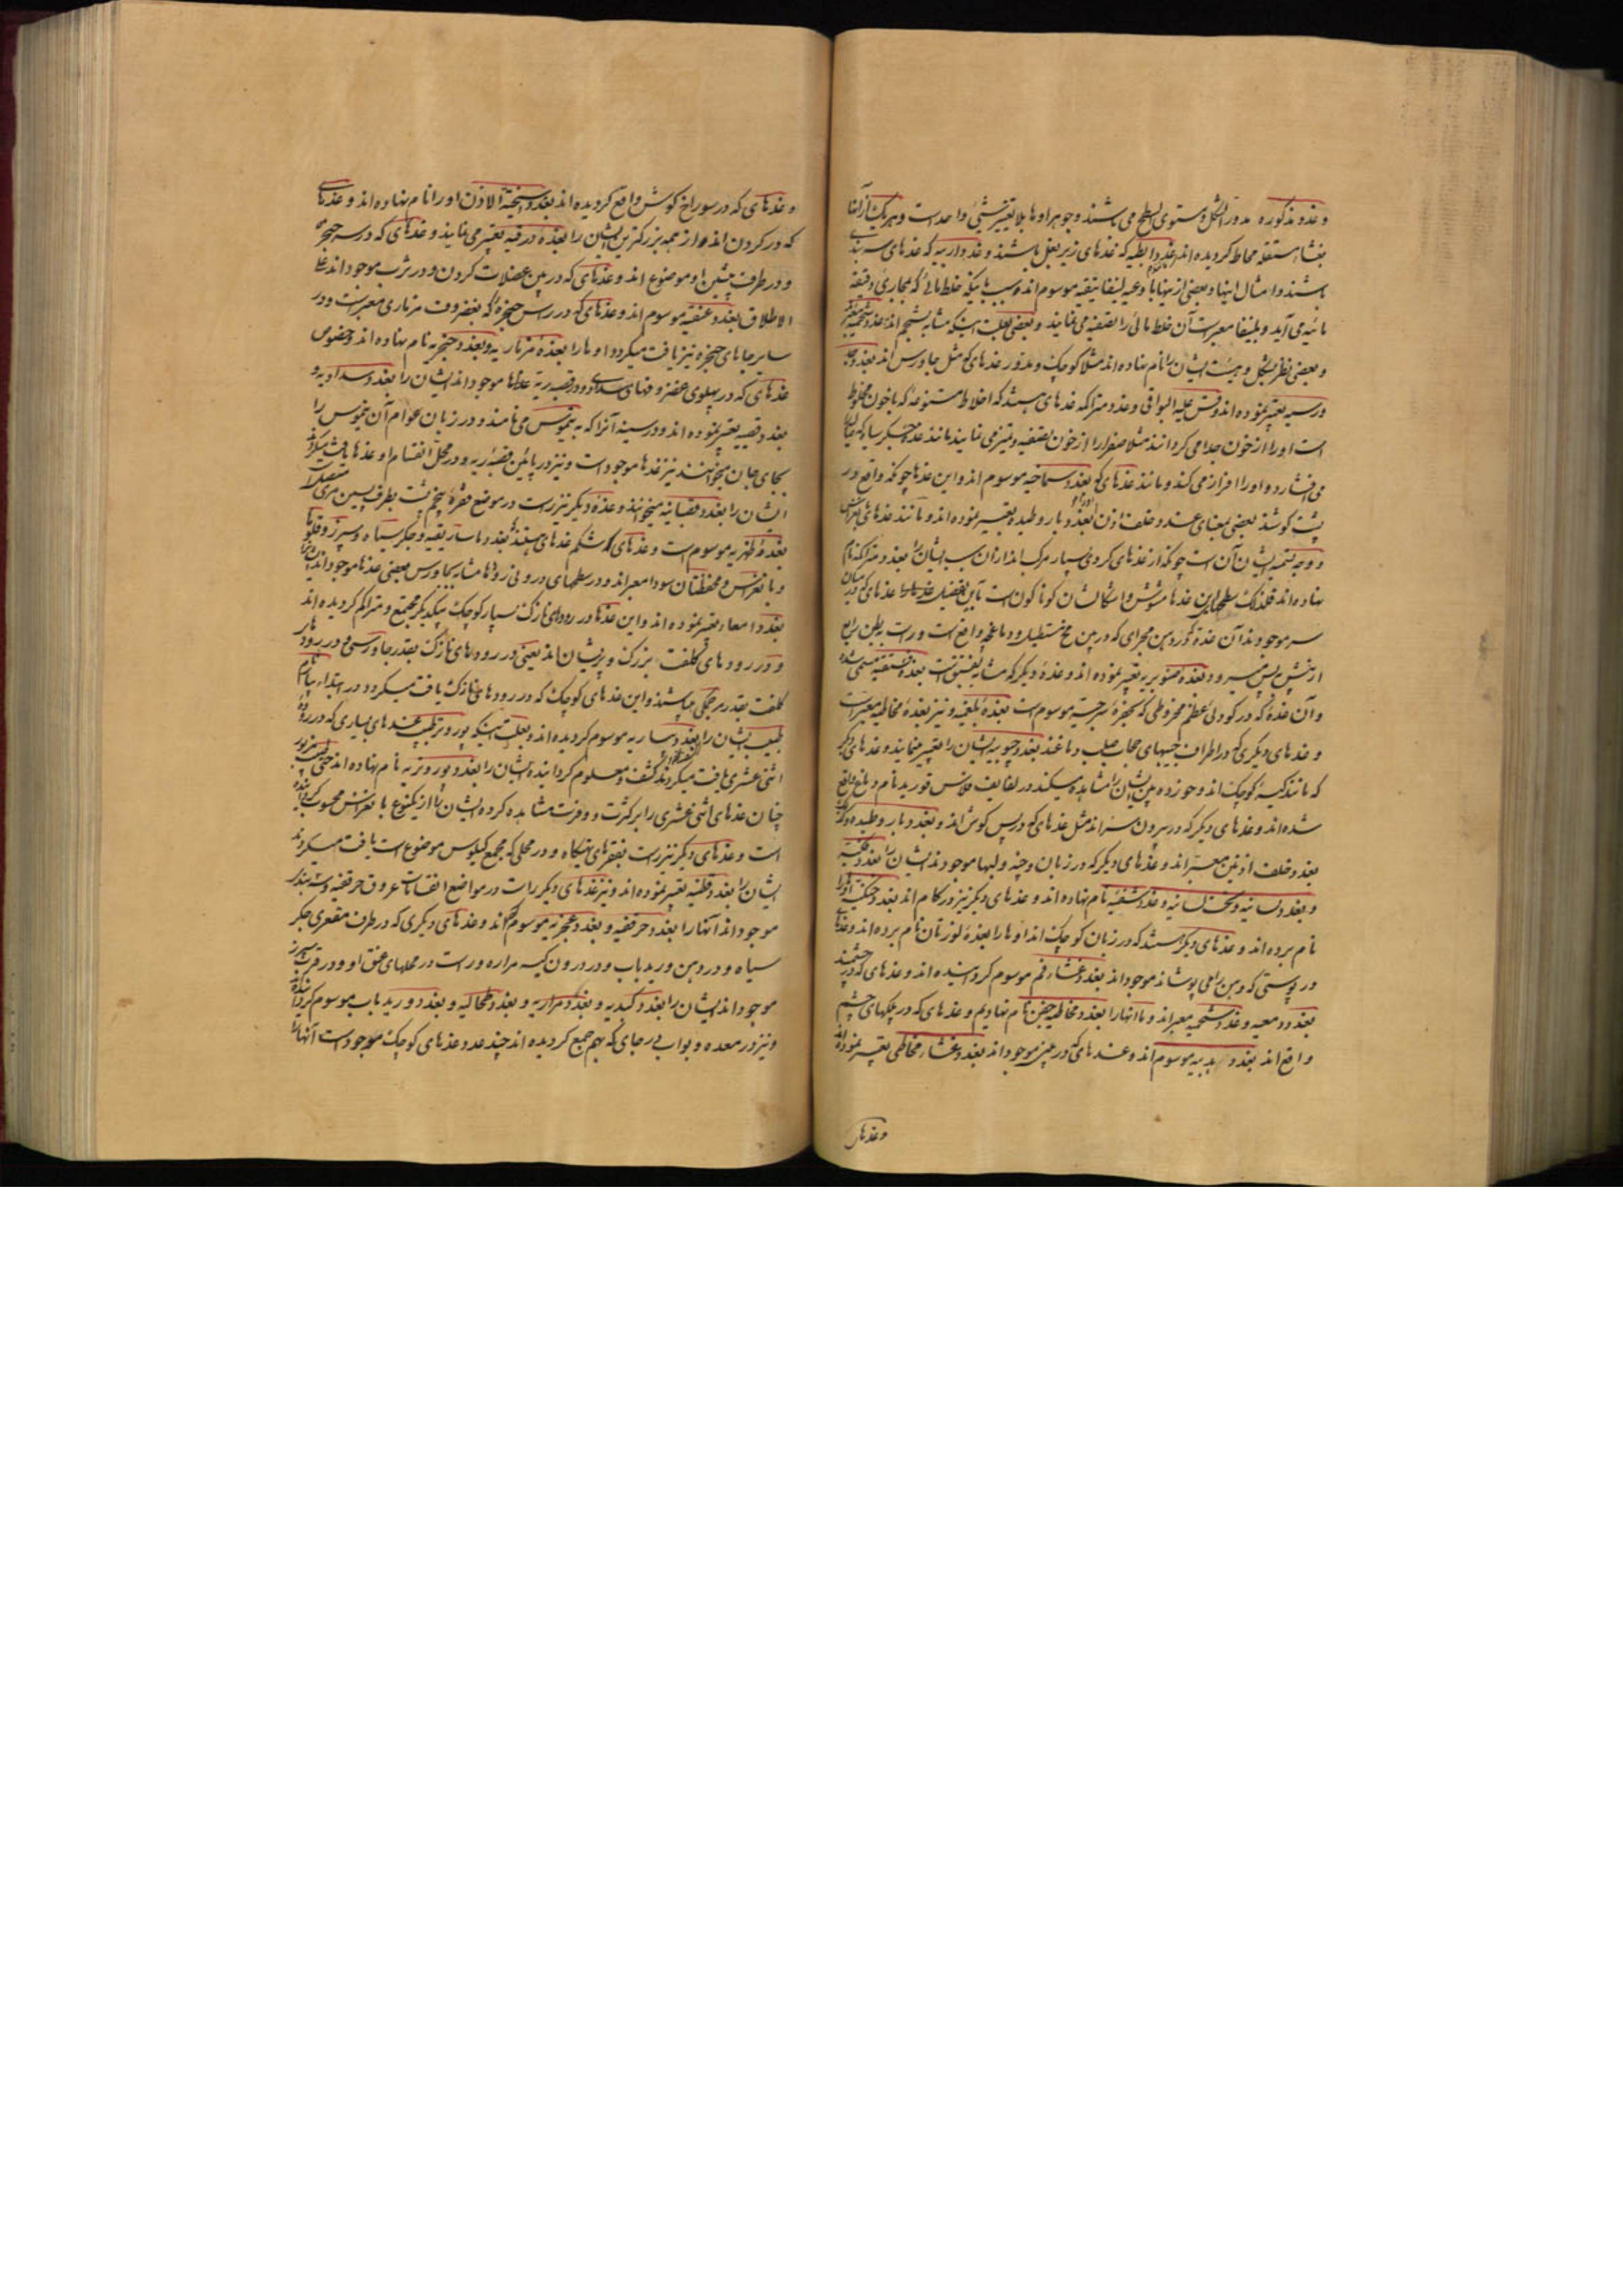 و غدد مذکوره مدور الشکل و مستوی السطح می باشند و جوهر اوها بلا تغییر شیئی واحد است و هریک از آنها
بغشاء مستقله محاط کردیده اند غدد ابطیه که غدهای زیر بغل باشند و غدد اربیه که غدهای
باشند و امثال اینها و بعضی از بنها با وعیه لینفاتیقیه موسوم اند و سبب اینکه خلط مائی که بمجاری دقیقه
مائیه می آید و بلینفا معبر است آن خلط مائی را تصفیه می نمایند و بعضی بعلت اینکه مشابه بشحم اند غدد شحمیه
و بعضی نظر بشکل و هیئت ایشان را نام نهاده اند مثلا کوچک و مدور غدهای که مثل جاورس اند بغدد
درسیه تعبیر نموده اند و قس علیه البواقی و غدد متراکمه غدهای هستند که اخلاط متنوعه که با خون مخلوط
است او را از خون جدا می کردانند مثلا صفرا را از خون تصفیه و تمیز می نمایند مانند غده جکر سیاه که
می افشارد و او را افراز می کند و مانند غدهای که بغدد سماخیه موسوم اند و این غدها چونکه واقع در
پشت کوشند بعضی بمعنای غدد خلف اذن بغدد باروطیه تعبیر نموده اند و مانند غدهای
و وجه تسمیه ایشان آن است چونکه از غدهای کروی بسیار مرکب اند ازان سبب ایشان را بغدد متراکمه نام
نهاده اند فلذلک سطحهای این غدها مشوش و اشکالشان کوناکون است باین تفصیل غدهای که در میان
سر موجودند آن غده که در دهن مجرای که در بین مخ مستطیل و دماغچه واقع است و راست ببطن رابع
از پیش پس میرود بغده صنوبریه تعبیر نموده اند و غده دیکر که مشابه بفستق است بغده فستقیه مسمی شده
و آن غده که در کودی عظم مخروطی که بحجره سرجیه موسوم است بغده بلغمیه و نیز بغده مخاطیه معبر است
و غدهای دیکری که در اطراف جیبهای حجاب صلب دماغند بغدد جیوبیه ایشان را تعبیر مینمایند و غدهای دیکر
که مانند کیسه کوچک اند و خوزده بین ایشان را مشاهده میکند در لفایف فلانس قوریدنام دماغ واقع
شده اند و غدهای دیکر که در بیرون سراند مثل غدهای که در پس کوش اند و بغدد باروطیه
بغدد خلف اذنین معبر اند و غدهای دیکر که در زبان و چنه و لبها موجودند ایشان را بغدد
و بغدد لسانیه و تحت لسانیه و غدد شفیه نام نهاده اند و غدهای دیکر نیز در کام اند بغدد حنکیه اوها را
نام برده اند و غدهای دیکر هستند که در زبان کوچک اند اوها را بغده لوزتان نام برده اند و غدهای
در پوستی که دهن را می پوشاند موجود اند بغدد غشاء فم موسوم کردانیده اند و غدهای که در چشمند
بغدد دمعیه و غدد شحمیه معبر اند و ما انها را بغدد مخاطیه جفن نام نهادیم و غدهای که در پلکهای چشم
واقع اند بغدد هدبیه موسوم اند و غدهای که در بینی موجود اند بغدد غشاء مخاطی تعبیر نموده اند
و غدهای
و غدهای که در سوراخ کوش واقع کردیده اند بغدد وسخیة الاذن او را نام نهاده اند و غدهای
که در کردن اند و از همه بزرکترین ایشان را بغده درقیه تعبیر می نمایند و غدهای که در سر حنجره
و در طرف پیشین او موضوع اند و غدهای که در بین عضلات کردن و در ثرب موجود اند علی
الاطلاق بغدد عنقیه موسوم اند و غدهای که در راس حنجره که بغضروف مزماری معبر است و در
سایر جاهای حنجره نیز یافت میکردد اوها را بغده مزماریه و بغدد حنجریه نام نهاده اند و خصوص
غدهای که در پهلوی و در قصبه ریه علنا موجود اند ایشان را بغدد
بغدد قصبیه تعبیر نموده اند و در سینه آنرا که به تیموس می نامند و در زبان عوام آن تیموس را
بجای جان میخوانند نیز غدها موجود است و نیز در پائین قصبه ریه و در محل انقسام او غدها یافت میکردد
ایشان را بغدد قصبانیه میخوانند و غده دیکر نیز است در موضع فقره پنجم پشت بطرف پسین مری متصل
بغده ظهریه موسوم است و غدهای که در شکم غدهای هستند بغدد ماساریقیه و جکر سیاه و سپرز و قلوها
و بانقراس و محفظتان سودا معبر اند و در سطحهای درونی رودها مشابه بجاورس بعضی غدها موجود اند
بغدد امعاء تعبیر نموده اند و این غدها در رودهای نازک بسیار کوچک بیکدیکر مجتمع و متراکم کردیده اند
و در رودهای کلفت بزرک و پریشان اند یعنی در رودهای نازک بقدر جاورسی و در رودهای
کلفت بقدر مرجمکی میباشند و این غدهای کوچک که در رودهای نازک یافت میکردد در ابتداء پیام نام
طبیب ایشان را بغدد موسوم کردیده اند و بعلت اینکه بورونر طبیب غدهای بسیاری که در روده
اثنی عشری یافت میکردند کشف و معلوم کردانیده ایشان را بغدد بورونریه نام نهاده اند حتی
چنان غدهای اثنی عشری را بر کثرت و وفرت مشاهده کرده ایشان را از یک نوع بانقراس محسوب
است و غدهای دیکر نیز است بفقرهای تهیکاه و در محلی که مجمع کیلوس موضوع است یافت میکردند
ایشان را بغدد قطنیه تعبیر نموده اند و نیز غدهای دیکر راست در مواضع انقسامات عروق حرقفیه
موجود اند آنها را بغدد حرقفیه و بغدد عجزیه موسوم اند و غدهای دیکری که در طرف مقعری جکر
سیاه و در دهن ورید باب و در درون کیسه مراره و راست در محلهای عنق او و در قرب سپرز
موجود اند ایشان را بغدد کبدیه و بغدد مراریه و بغدد طحالیه و بغدد ورید باب موسوم
و نیز در معده و بواب در جای که بهم جمع کردیده اند چند عدد غدهای کوچک موجود است آنها را